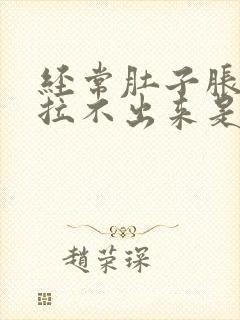 經常肚子脹
拉不出来是
趙荣琛